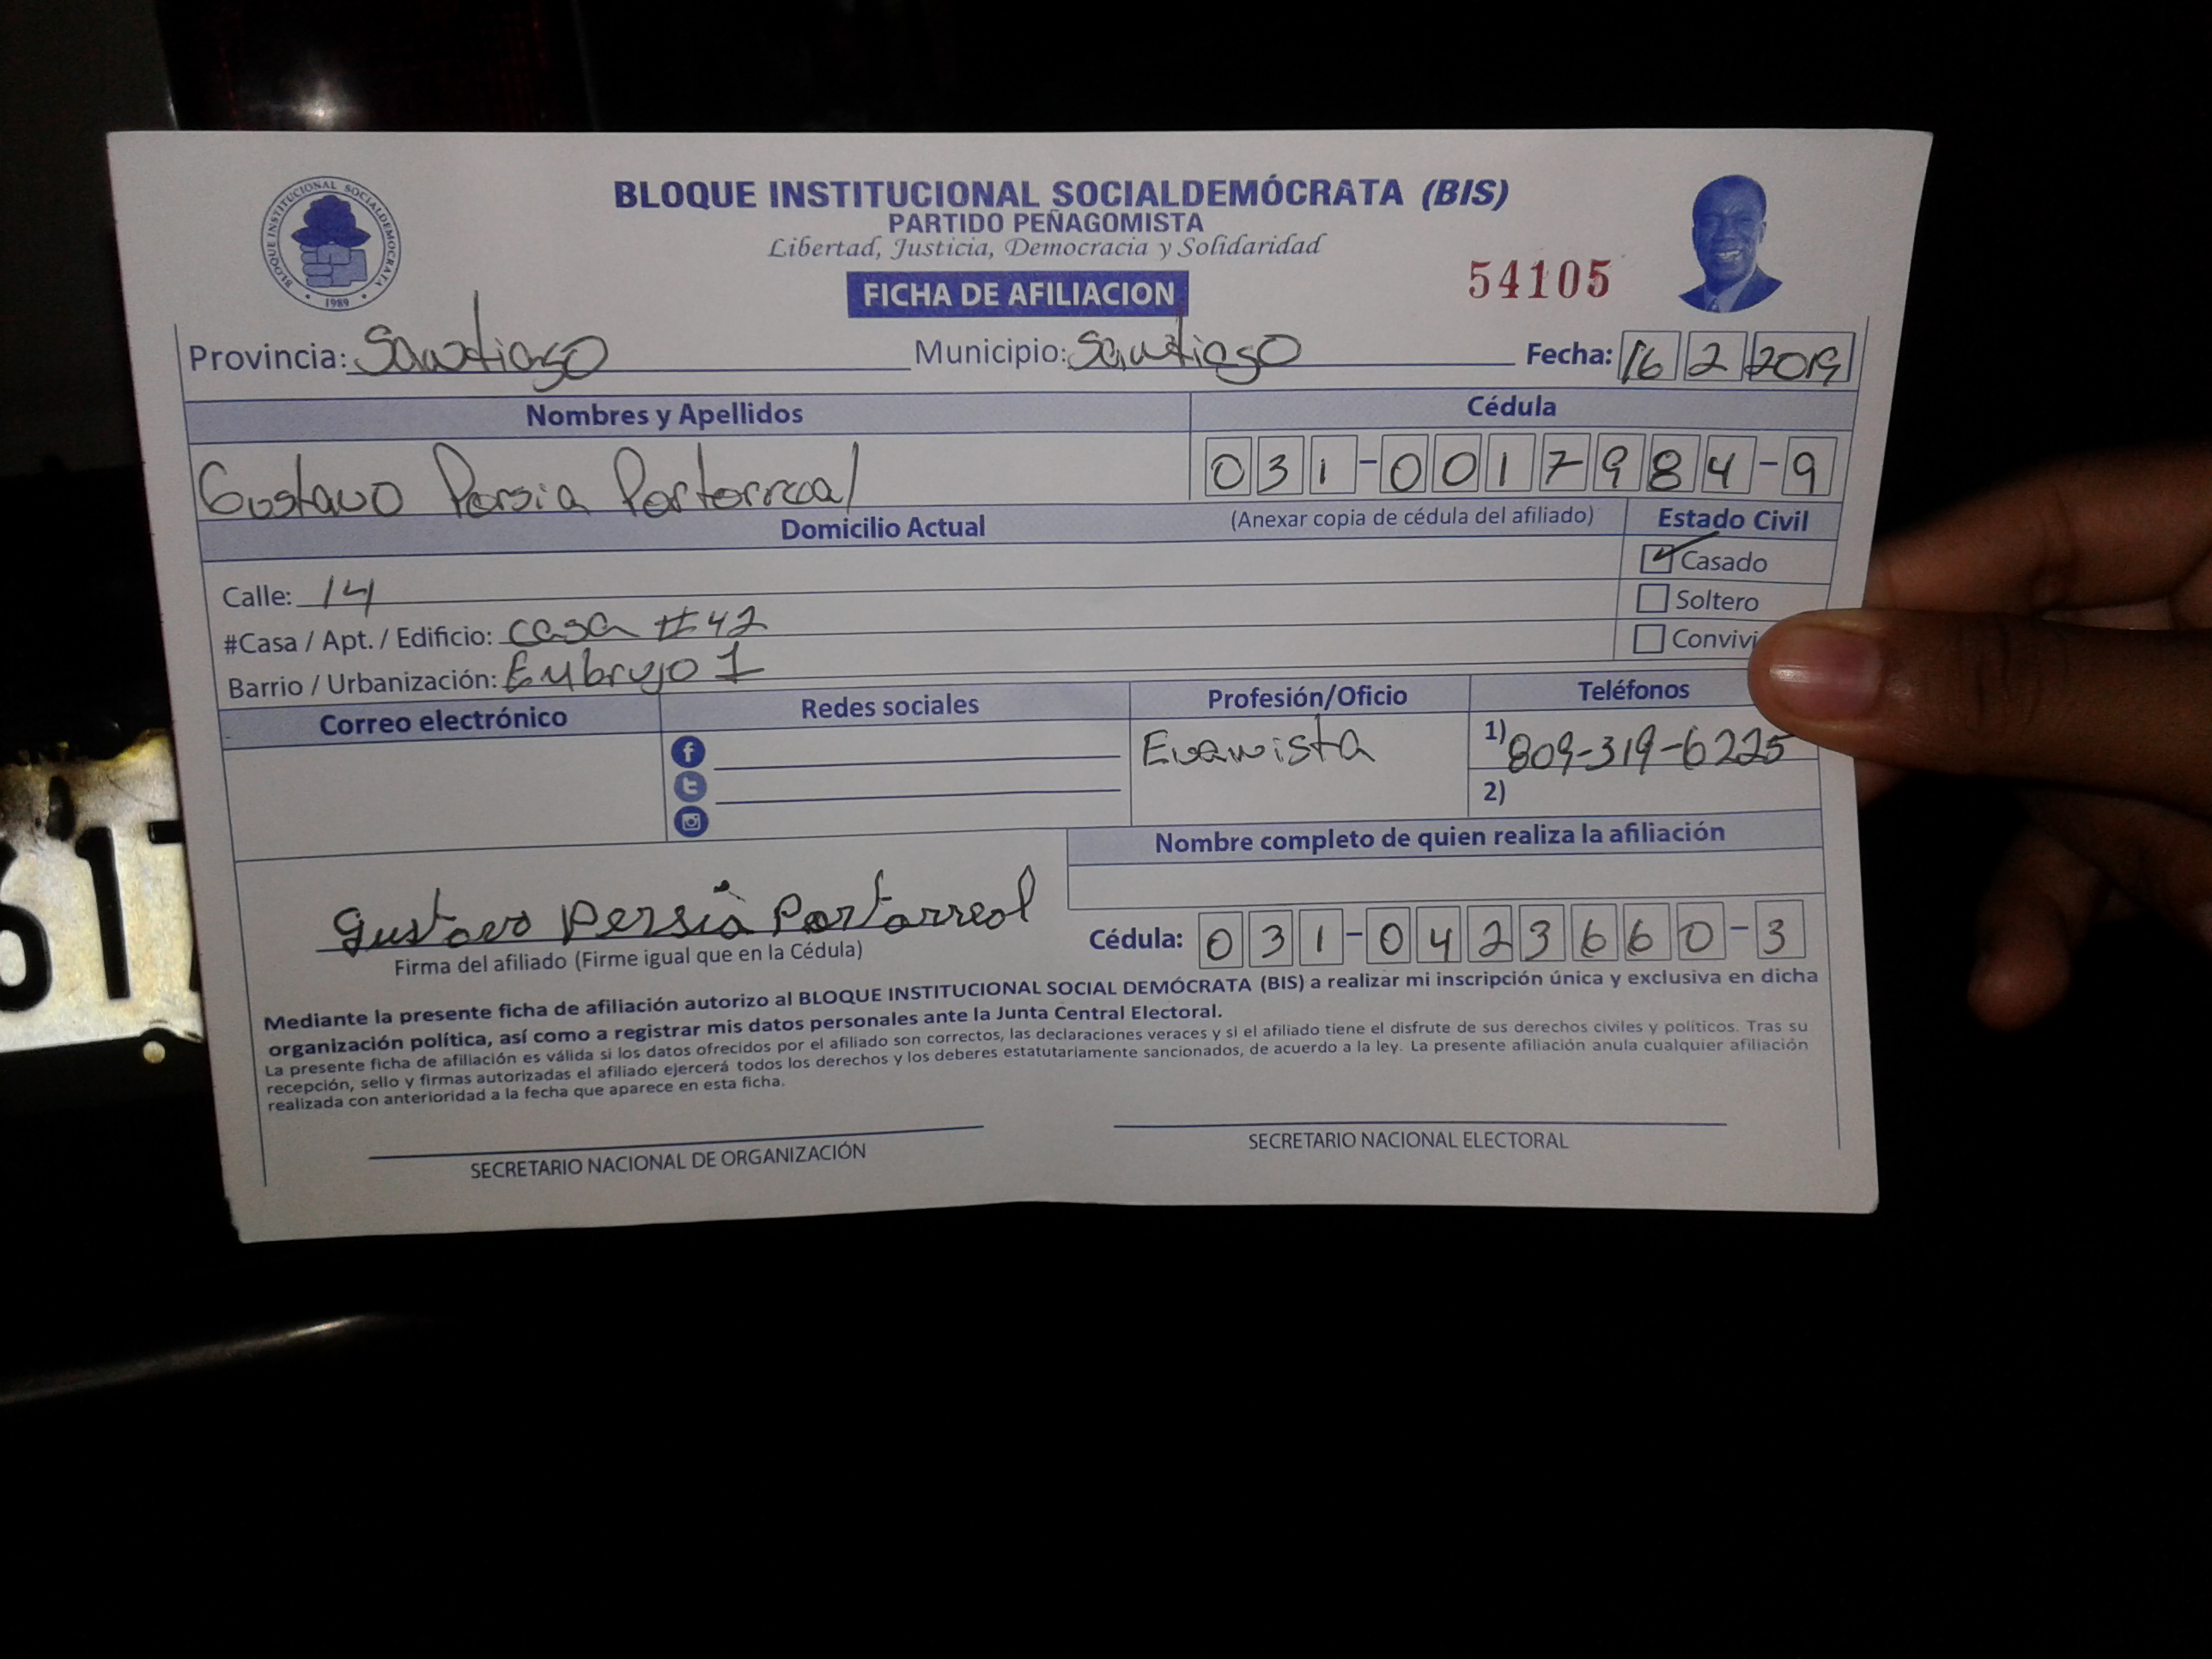 BLOQUE INSTITUCIONAL SOCIALDEMÓCRATA (BIS)
PARTIDO PEÑAGOMISTA
Libertad, Justicia, Democracia y Solidaridad
BLOQUE INSTITUCIONAL SOCIALDEMOCRATA
1989
FICHA DE AFILIACION
54105
Provincia: Santiago Municipio: Santiago Fecha: 16 2 2019
Nombres y Apellidos Cédula
Gustavo Persia Portorreal 031-0017984-9
Domicilio Actual (Anexar copia de cédula del afiliado) Estado Civil
Casado
Calle: 14
Soltero
#Casa / Apt. / Edificio: casa #42
Convivi
Barrio / Urbanización: Embrujo 1
Correo electrónico Redes sociales Profesión/Oficio Teléfonos
Evanista 1) 809-319-6225
2)
Nombre completo de quien realiza la afiliación
Gustavo Persia Portorreal
Cédula: 031-0423660-3
Firma del afiliado (Firme igual que en la Cédula)
Mediante la presente ficha de afiliación autorizo al BLOQUE INSTITUCIONAL SOCIAL DEMÓCRATA (BIS) a realizar mi inscripción única y exclusiva en dicha
organización política, así como a registrar mis datos personales ante la Junta Central Electoral.
La presente ficha de afiliación es válida si los datos ofrecidos por el afiliado son correctos, las declaraciones veraces y si el afiliado tiene el disfrute de sus derechos civiles y políticos. Tras su
recepción, sello y firmas autorizadas el afiliado ejercerá todos los derechos y los deberes estatutariamente sancionados, de acuerdo a la ley. La presente afiliación anula cualquier afiliación
realizada con anterioridad a la fecha que aparece en esta ficha.
SECRETARIO NACIONAL DE ORGANIZACIÓN SECRETARIO NACIONAL ELECTORAL